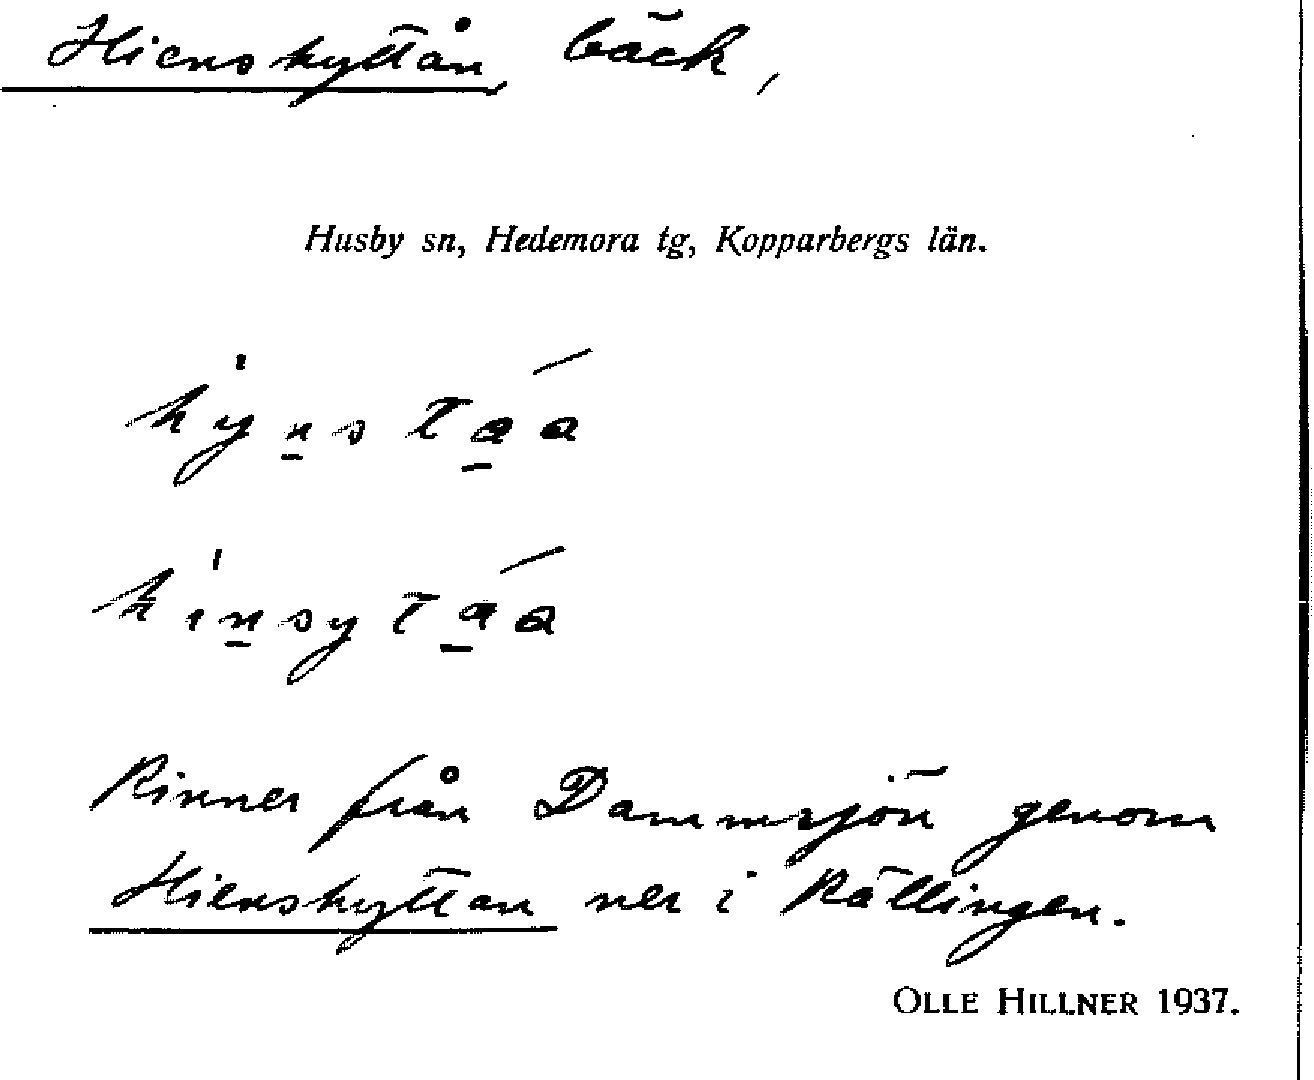 Hienshyttån, bäck,
Husby sn, Hedemora tg, Kopparbergs län.
Rinner från Dammsjön genom
Hienshyttan ner i Rällingen.
OLLE HILLNER 1937.